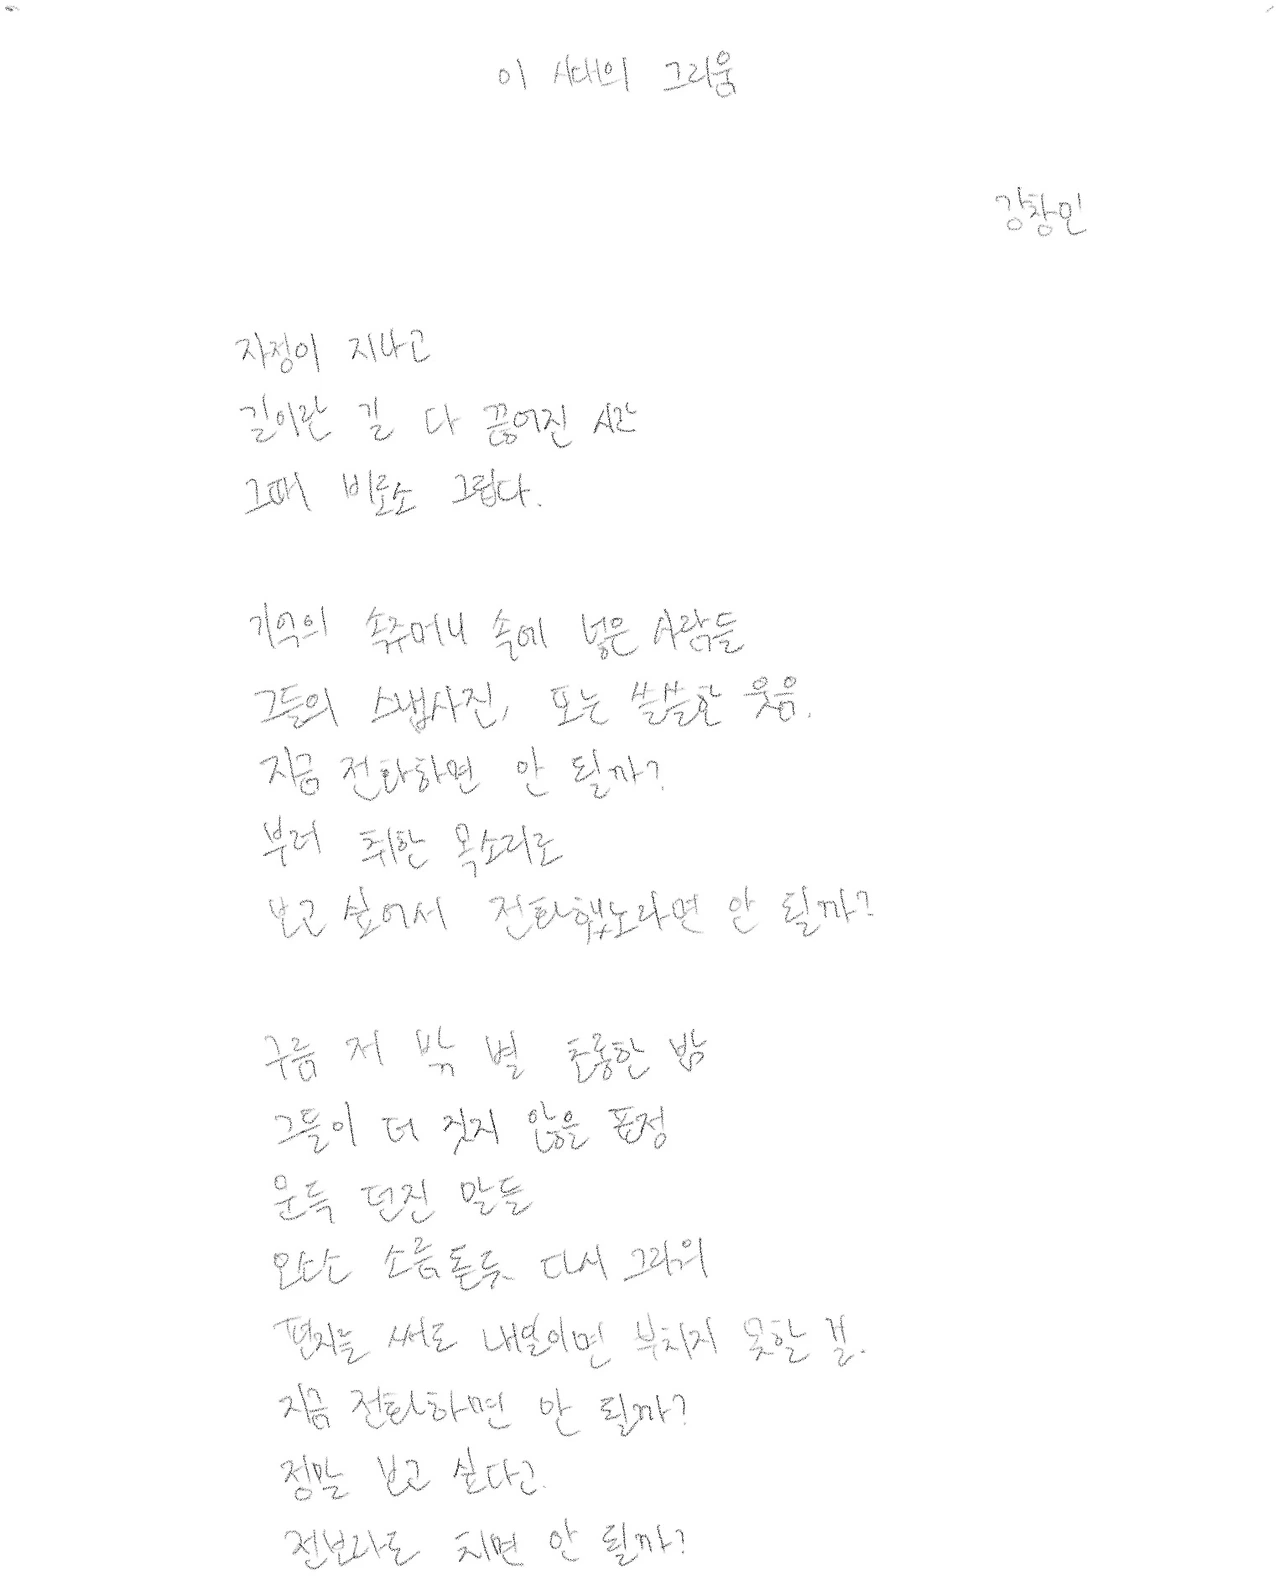 이 시대의 그리움
강창민
자정이 지나고
길이란 길 다 끊어진 시간
그때 비로소 그립다.
기억의 속주머니 속에 넣은 사람들
그들의 스냅사진, 또는 쓸쓸한 웃음.
지금 전화하면 안 될까?
부러 취한 목소리로
보고 싶어서 전화했노라면 안 될까?
구름 저 밖 별 초롱한 밤
그들이 더 짓지 않을 표정
문득 던진 말들
오소소 소름돋듯 다시 그리워
편지를 써도 내일이면 부치지 못할 걸.
지금 전화하면 안 될까?
정말 보고 싶다고.
전보라도 치면 안 될까?